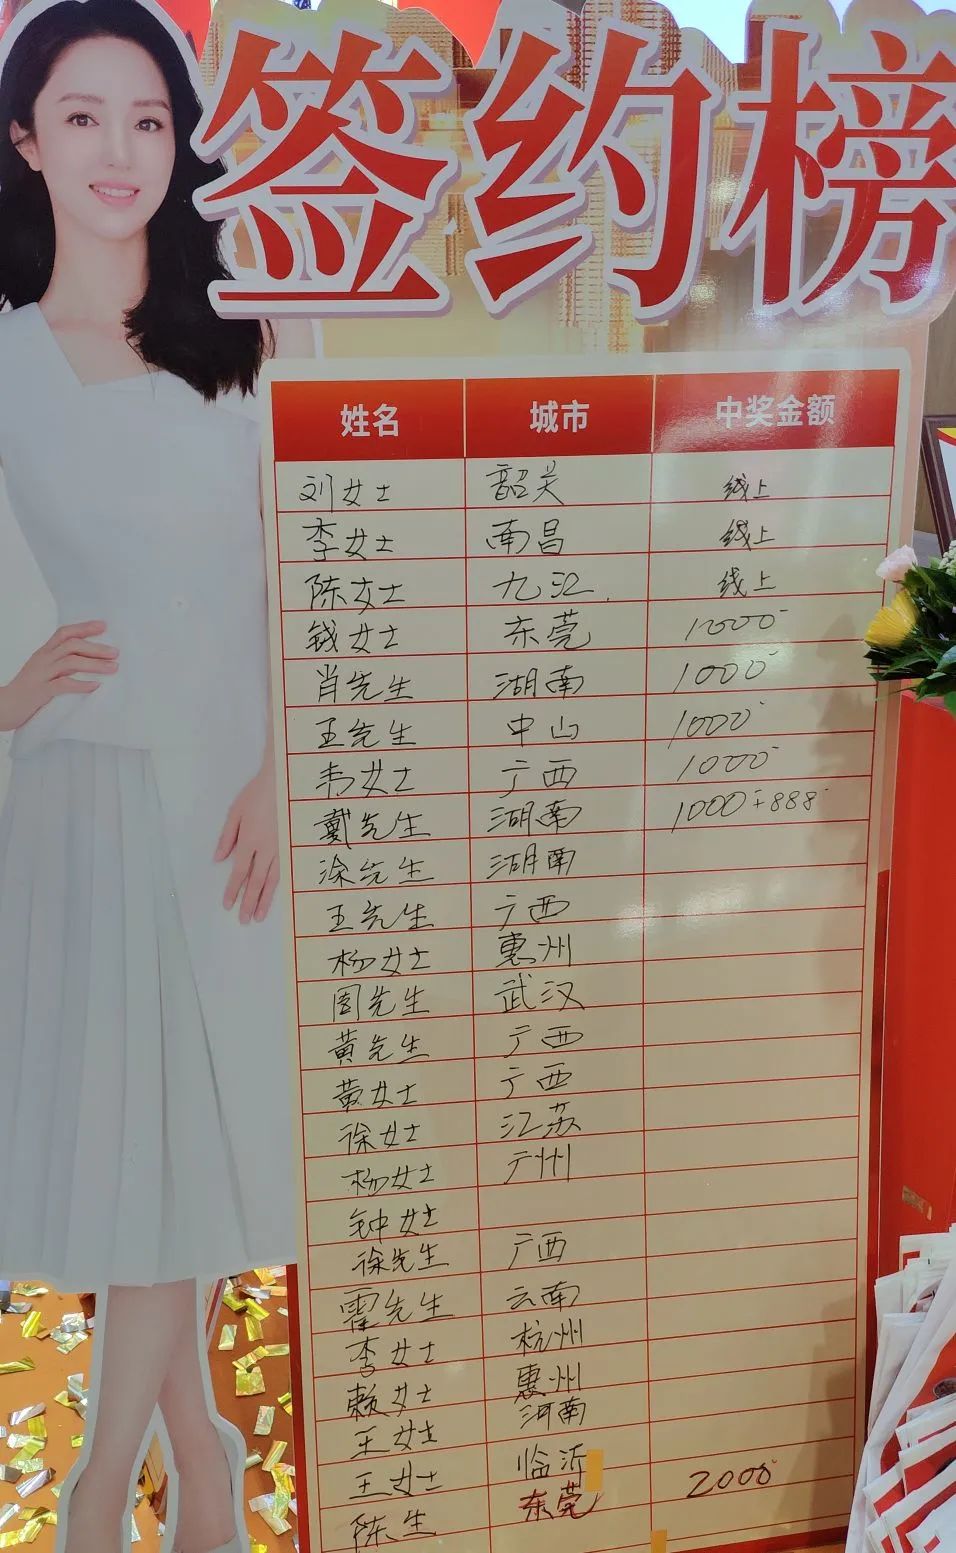 签约榜
姓名 城市 中奖金额
刘女士 韶关 线上
李女士 南昌 线上
陈女士 九江 线上
钱女士 东莞 1000
肖先生 湖南 1000
王先生 中山 1000
韦女士 广西 1000
戴先生 湖南 1000+888
涂先生 湖南
王先生 广西
杨女士 惠州
周先生 武汉
黄先生 广西
黄女士 广西
徐女士 江苏
杨女士 广州
钟女士
徐先生 广西
霍先生 云南
李女士 杭州
赖女士 惠州
王女士 河南
王女士 临沂 2000
陈生 东莞